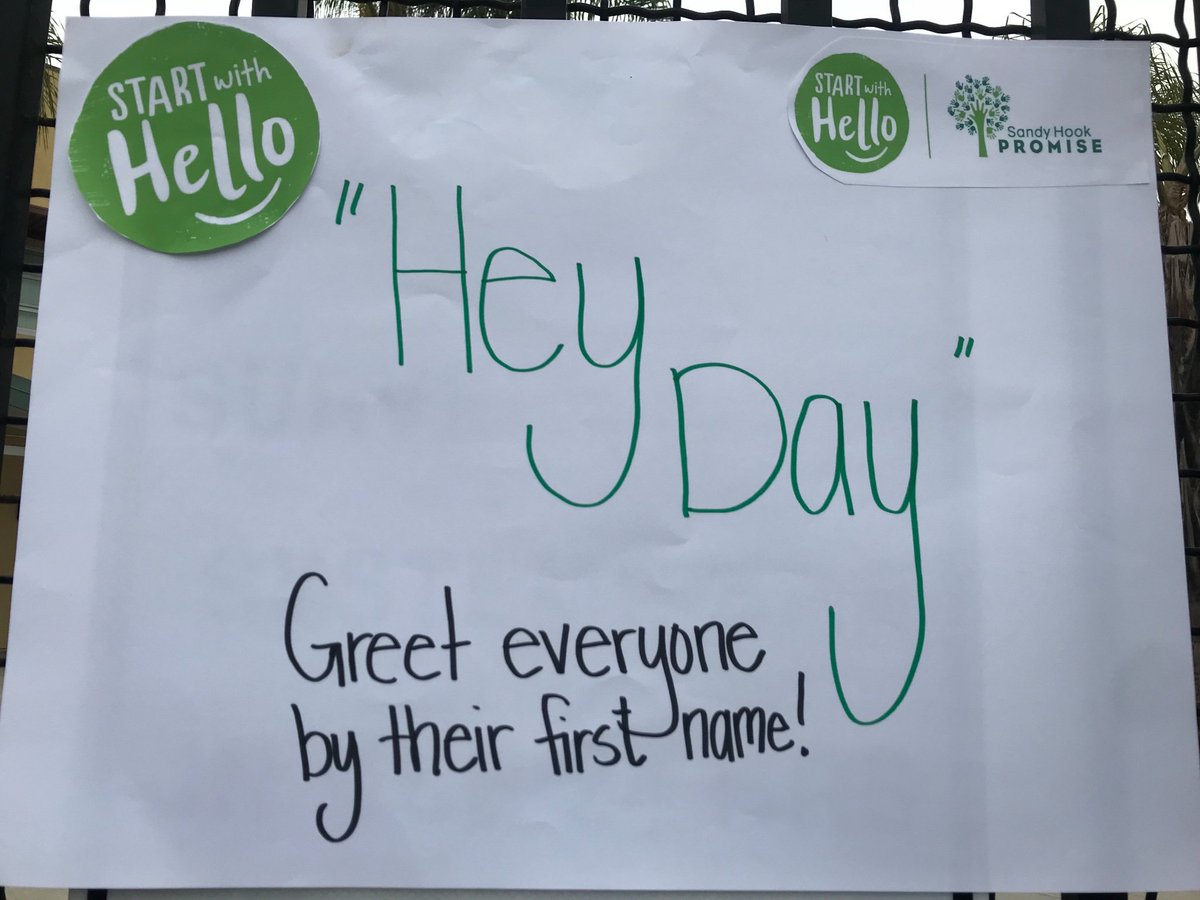 START with
Hello
START with
Hello
Sandy Hook
PROMISE
"Hey
Day"
Greet everyone
by their first name!